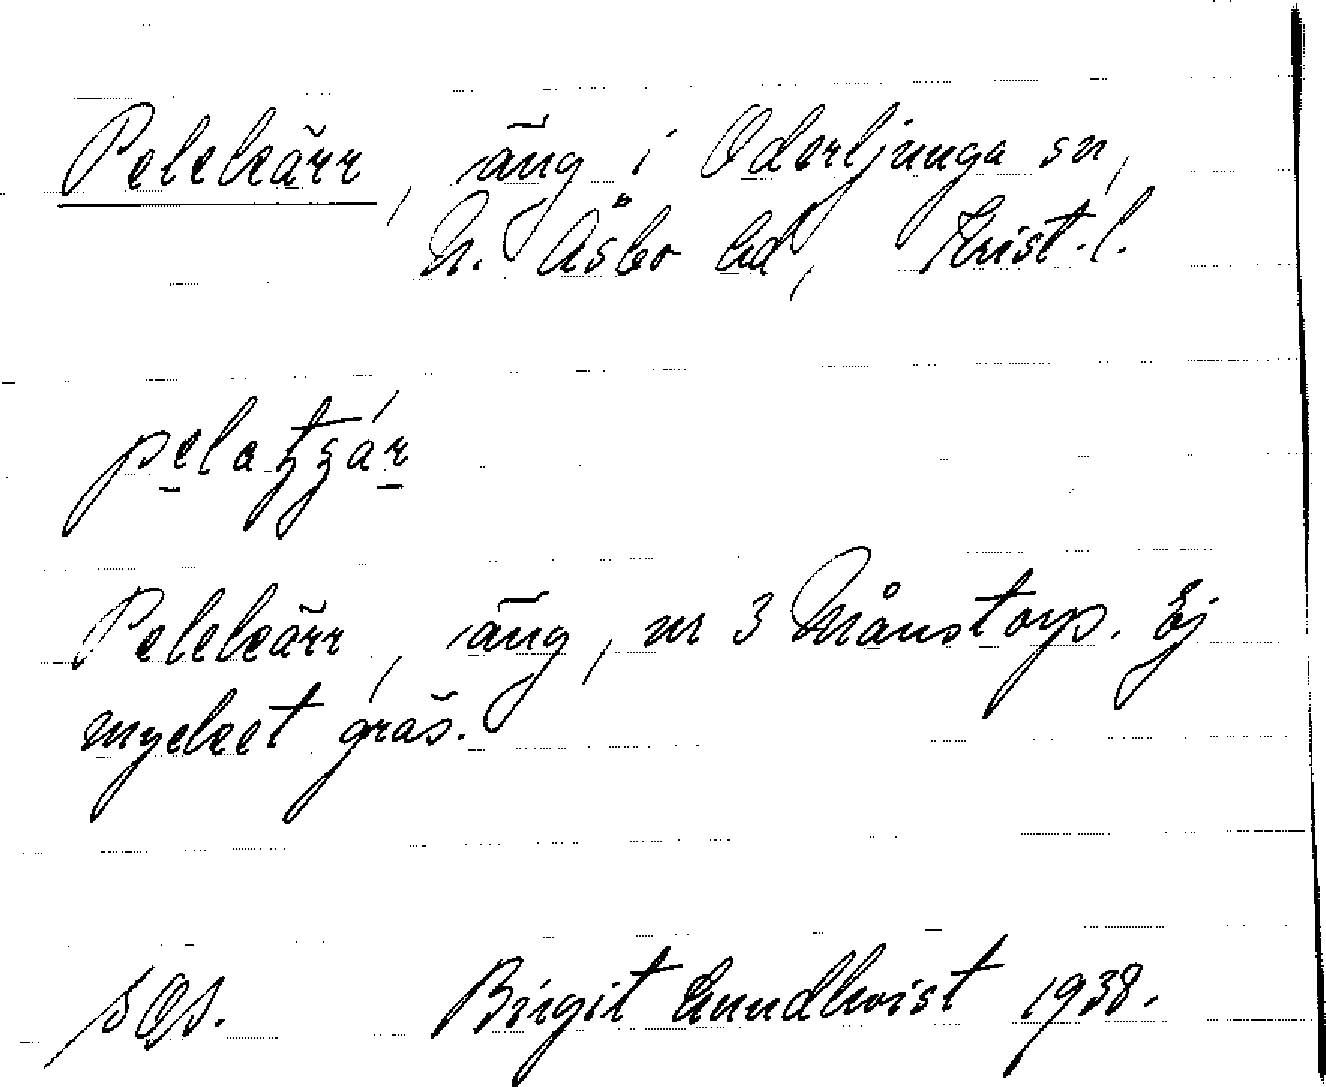 Pelekärr, äng i Oderljunga sn,
N. Åsbo hd, Krist. l.
Pelekärr, äng, nr 3 Månstorp. Ej
mycket gräs.
Birgit Lundkvist 1938.